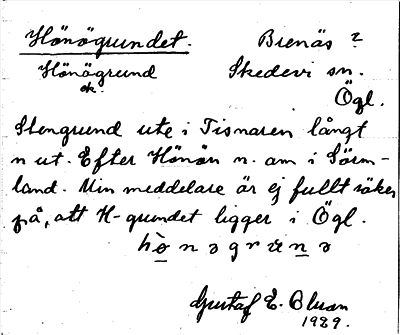 Hönögrundet. Brenäs ?
Hönögrund Skedevi sn.
ek. Ögl.
Stengrund ute i Tisnaren långt
n ut. Efter Hönön n. om i Sörm-
land. Min meddelare är ej fullt säker
på, att H-grundet ligger i Ögl.
Gustaf E. Bluan
1929.